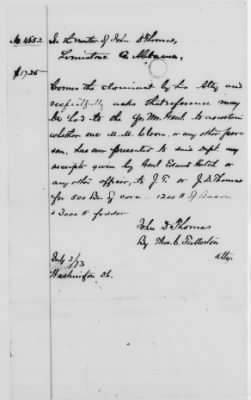 No 4552
In the matter of John D Thomas,
Limestone Co Alabama,
$1725—
Comes the claimant by his Atty and
respectfully asks that reference may
be had to the Qr. Mr. Genl. to ascertain
whether one M. M. or any other per
son, has ever presented to said Dept any
receipts given by Genl Edward Hatch or
any other officer, to J. T. or J. D. Thomas
for 500 Bu. of corn 1200 # of Bacon
& 2000 # fodder
John D Thomas
By Thos. C. Fullerton
Atty.
July 2/73
Washington